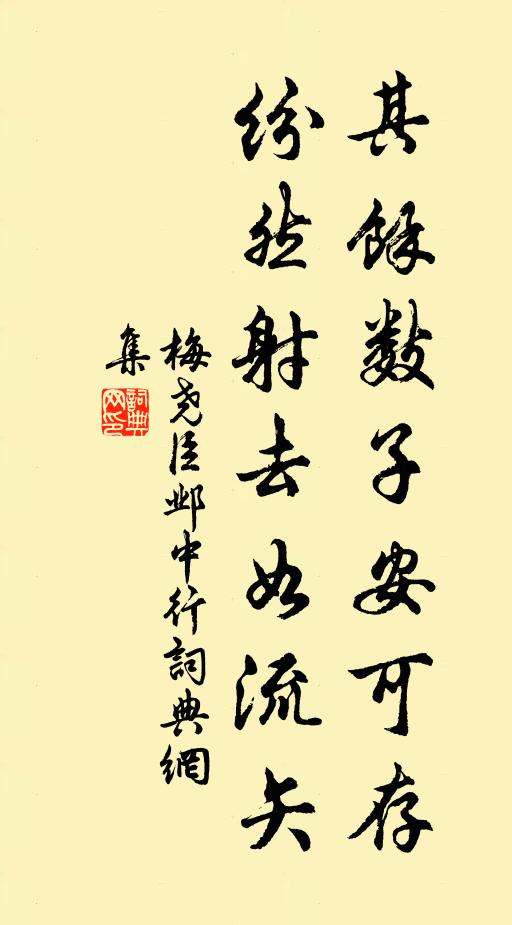 其餘數子安可存
紛然射去如流矢
梅堯臣鄴中行詞典網
集
詞典
网印